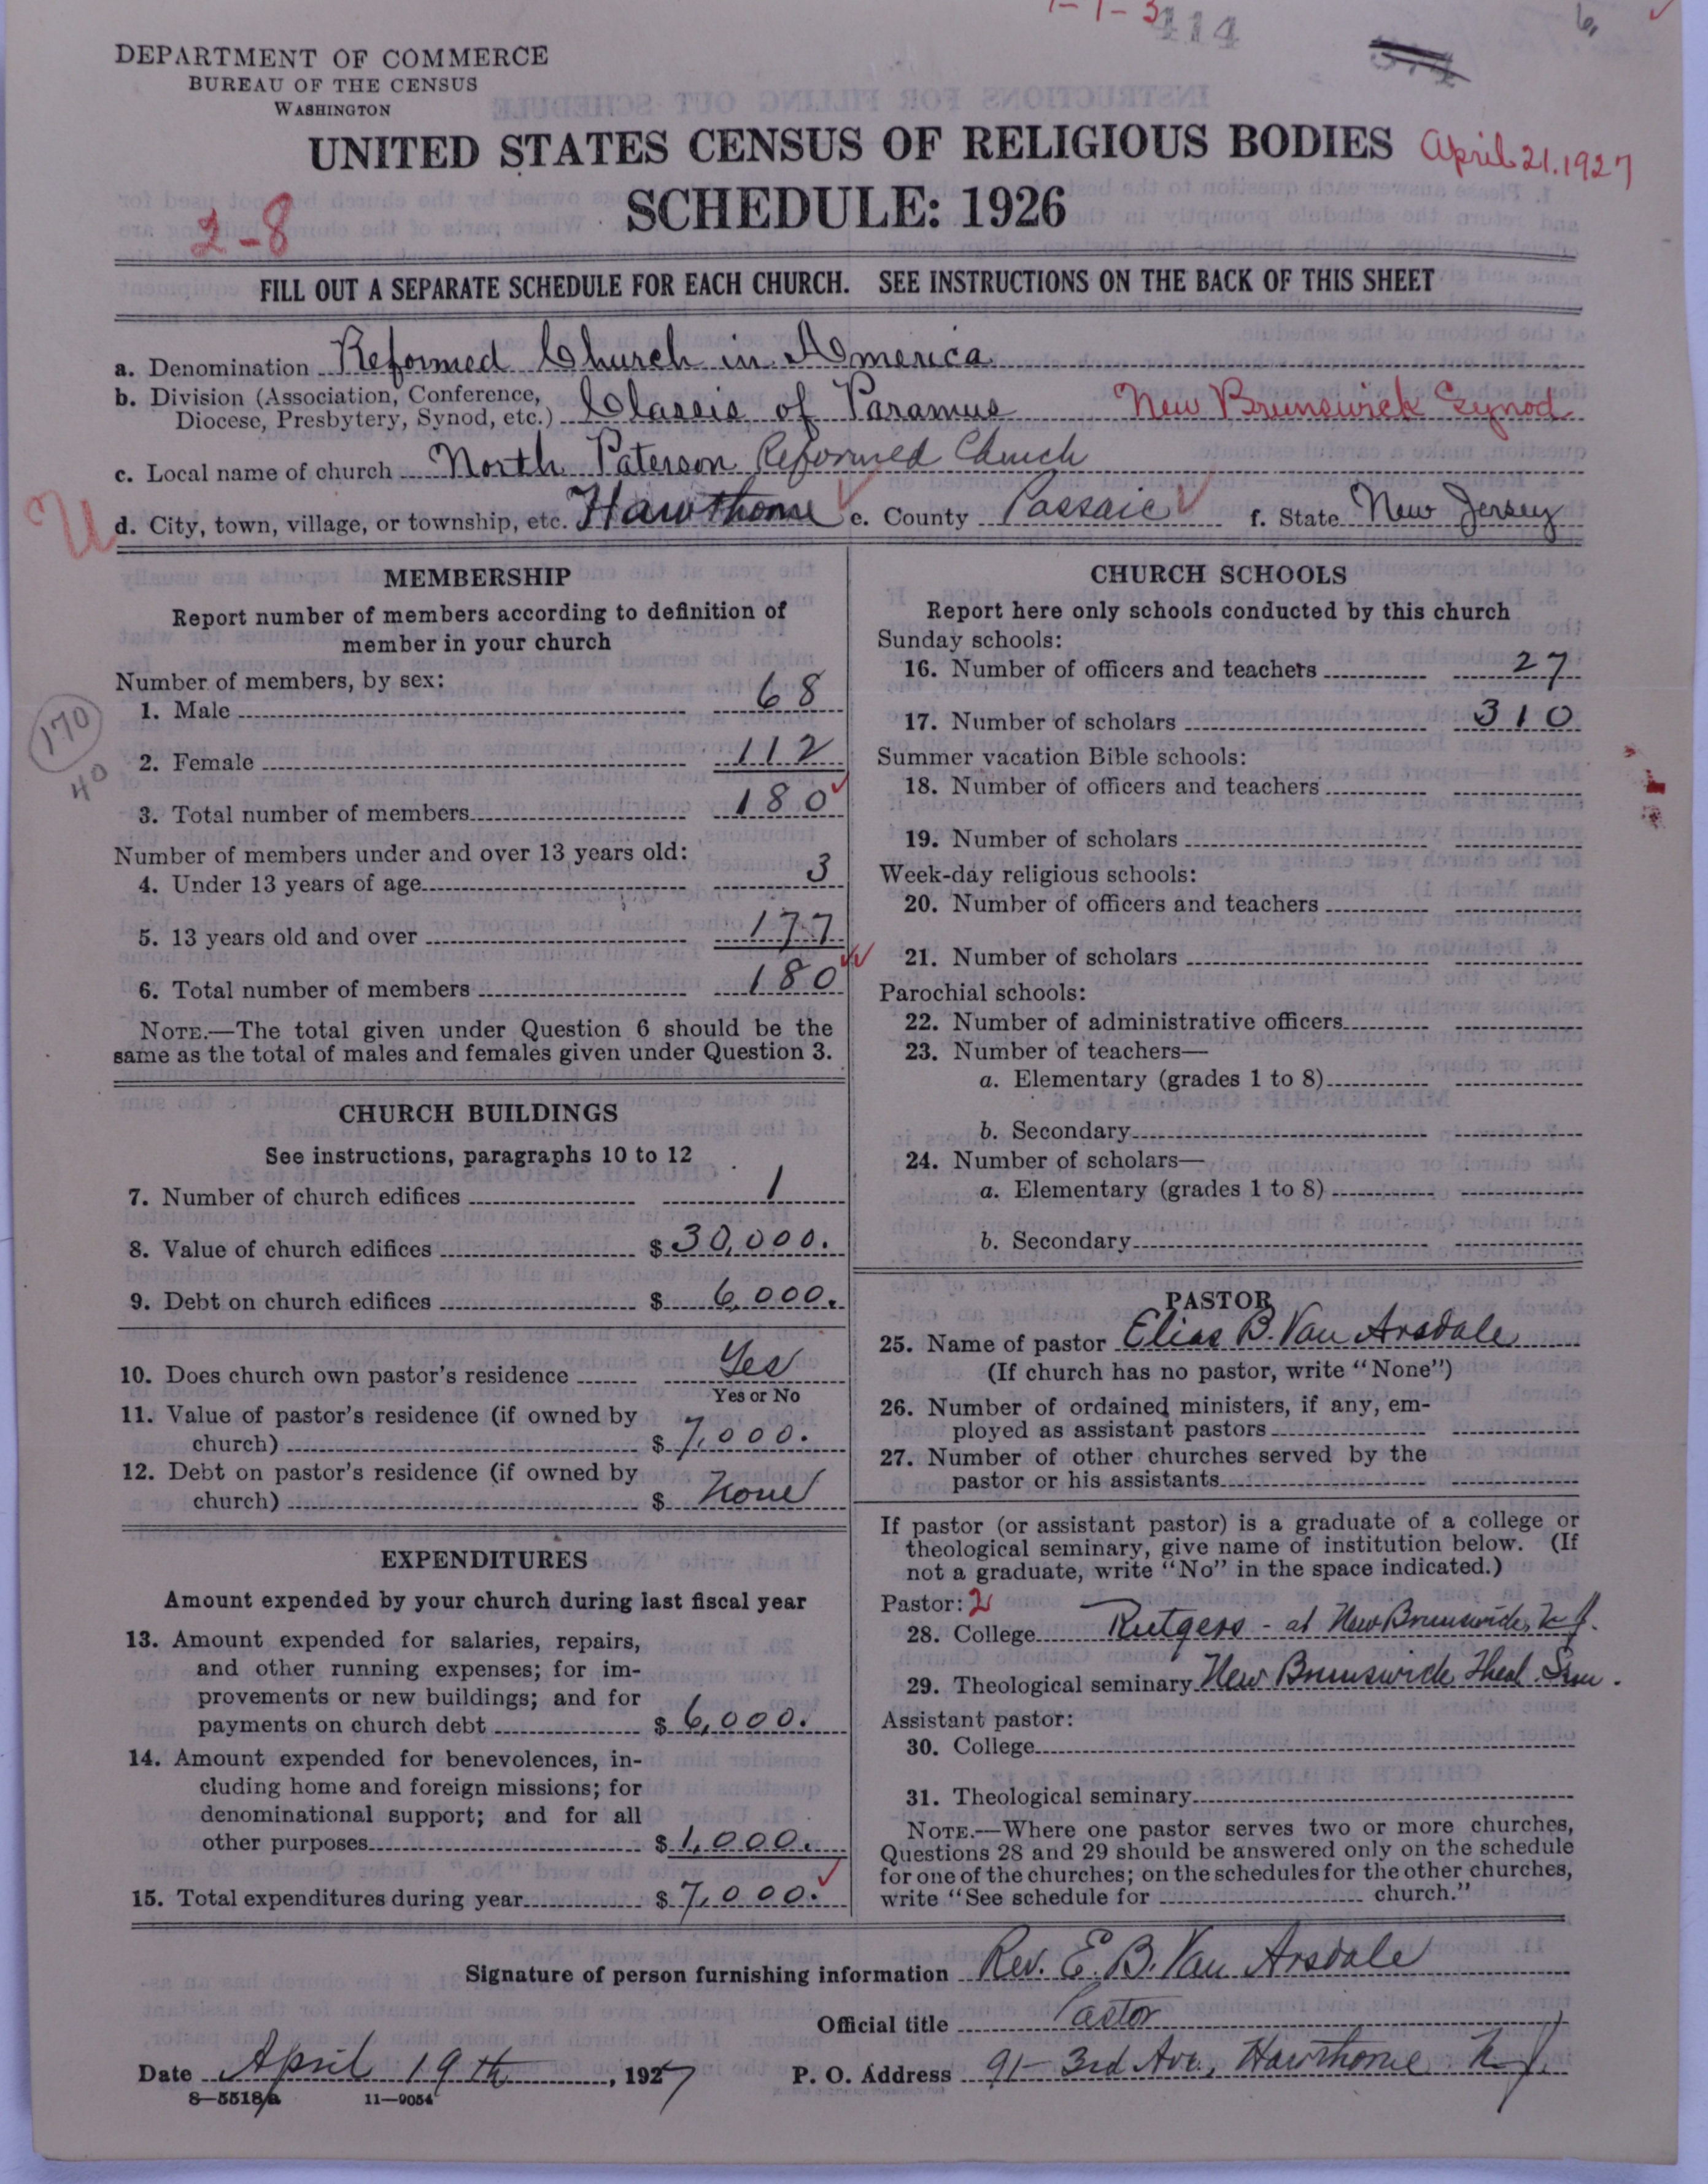 414
6,
DEPARTMENT OF COMMERCE
BUREAU OF THE CENSUS
WASHINGTON
UNITED STATES CENSUS OF RELIGIOUS BODIES April 21. 1927
SCHEDULE: 1926
2-8
FILL OUT A SEPARATE SCHEDULE FOR EACH CHURCH. SEE INSTRUCTIONS ON THE BACK OF THIS SHEET
a. Denomination Reformed Church in America
b. Division (Association, Conference,
Diocese, Presbytery, Synod, etc.) Classis of Paramus New Brunswick Synod
c. Local name of church North Paterson Reformed Church
U d. City, town, village, or township, etc. Hawthorne e. County Passaic f. State New Jersey
MEMBERSHIP
Report number of members according to definition of
member in your church
Number of members, by sex:
1. Male 68
170
2. Female 112
40
3. Total number of members 180
Number of members under and over 13 years old:
4. Under 13 years of age 3
5. 13 years old and over 177
6. Total number of members 180
NOTE.—The total given under Question 6 should be the
same as the total of males and females given under Question 3.
CHURCH BUILDINGS
See instructions, paragraphs 10 to 12
7. Number of church edifices 1
8. Value of church edifices $ 30,000.
9. Debt on church edifices $ 6,000.
10. Does church own pastor's residence Yes
Yes or No
11. Value of pastor's residence (if owned by
church) $ 7,000.
12. Debt on pastor's residence (if owned by
church) $ None
EXPENDITURES
Amount expended by your church during last fiscal year
13. Amount expended for salaries, repairs,
and other running expenses; for im-
provements or new buildings; and for
payments on church debt $ 6,000.
14. Amount expended for benevolences, in-
cluding home and foreign missions; for
denominational support; and for all
other purposes $ 1,000.
15. Total expenditures during year $ 7,000.
CHURCH SCHOOLS
Report here only schools conducted by this church
Sunday schools:
16. Number of officers and teachers 27
17. Number of scholars 310
Summer vacation Bible schools:
18. Number of officers and teachers
19. Number of scholars
Week-day religious schools:
20. Number of officers and teachers
21. Number of scholars
Parochial schools:
22. Number of administrative officers
23. Number of teachers—
a. Elementary (grades 1 to 8)
b. Secondary
24. Number of scholars—
a. Elementary (grades 1 to 8)
b. Secondary
PASTOR
25. Name of pastor Elias B. Van Arsdale
(If church has no pastor, write "None")
26. Number of ordained ministers, if any, em-
ployed as assistant pastors
27. Number of other churches served by the
pastor or his assistants
If pastor (or assistant pastor) is a graduate of a college or
theological seminary, give name of institution below. (If
not a graduate, write "No" in the space indicated.)
Pastor: 2
28. College Rutgers - at New Brunswick, N.J.
29. Theological seminary New Brunswick Theol. Sem.
Assistant pastor:
30. College
31. Theological seminary
NOTE.—Where one pastor serves two or more churches,
Questions 28 and 29 should be answered only on the schedule
for one of the churches; on the schedules for the other churches,
write "See schedule for church."
Signature of person furnishing information Rev. E. B. Van Arsdale
Official title Pastor
Date April 19th, 1927 P. O. Address 91- 3rd Ave., Hawthorne N.J.
8—5518a 11—9054